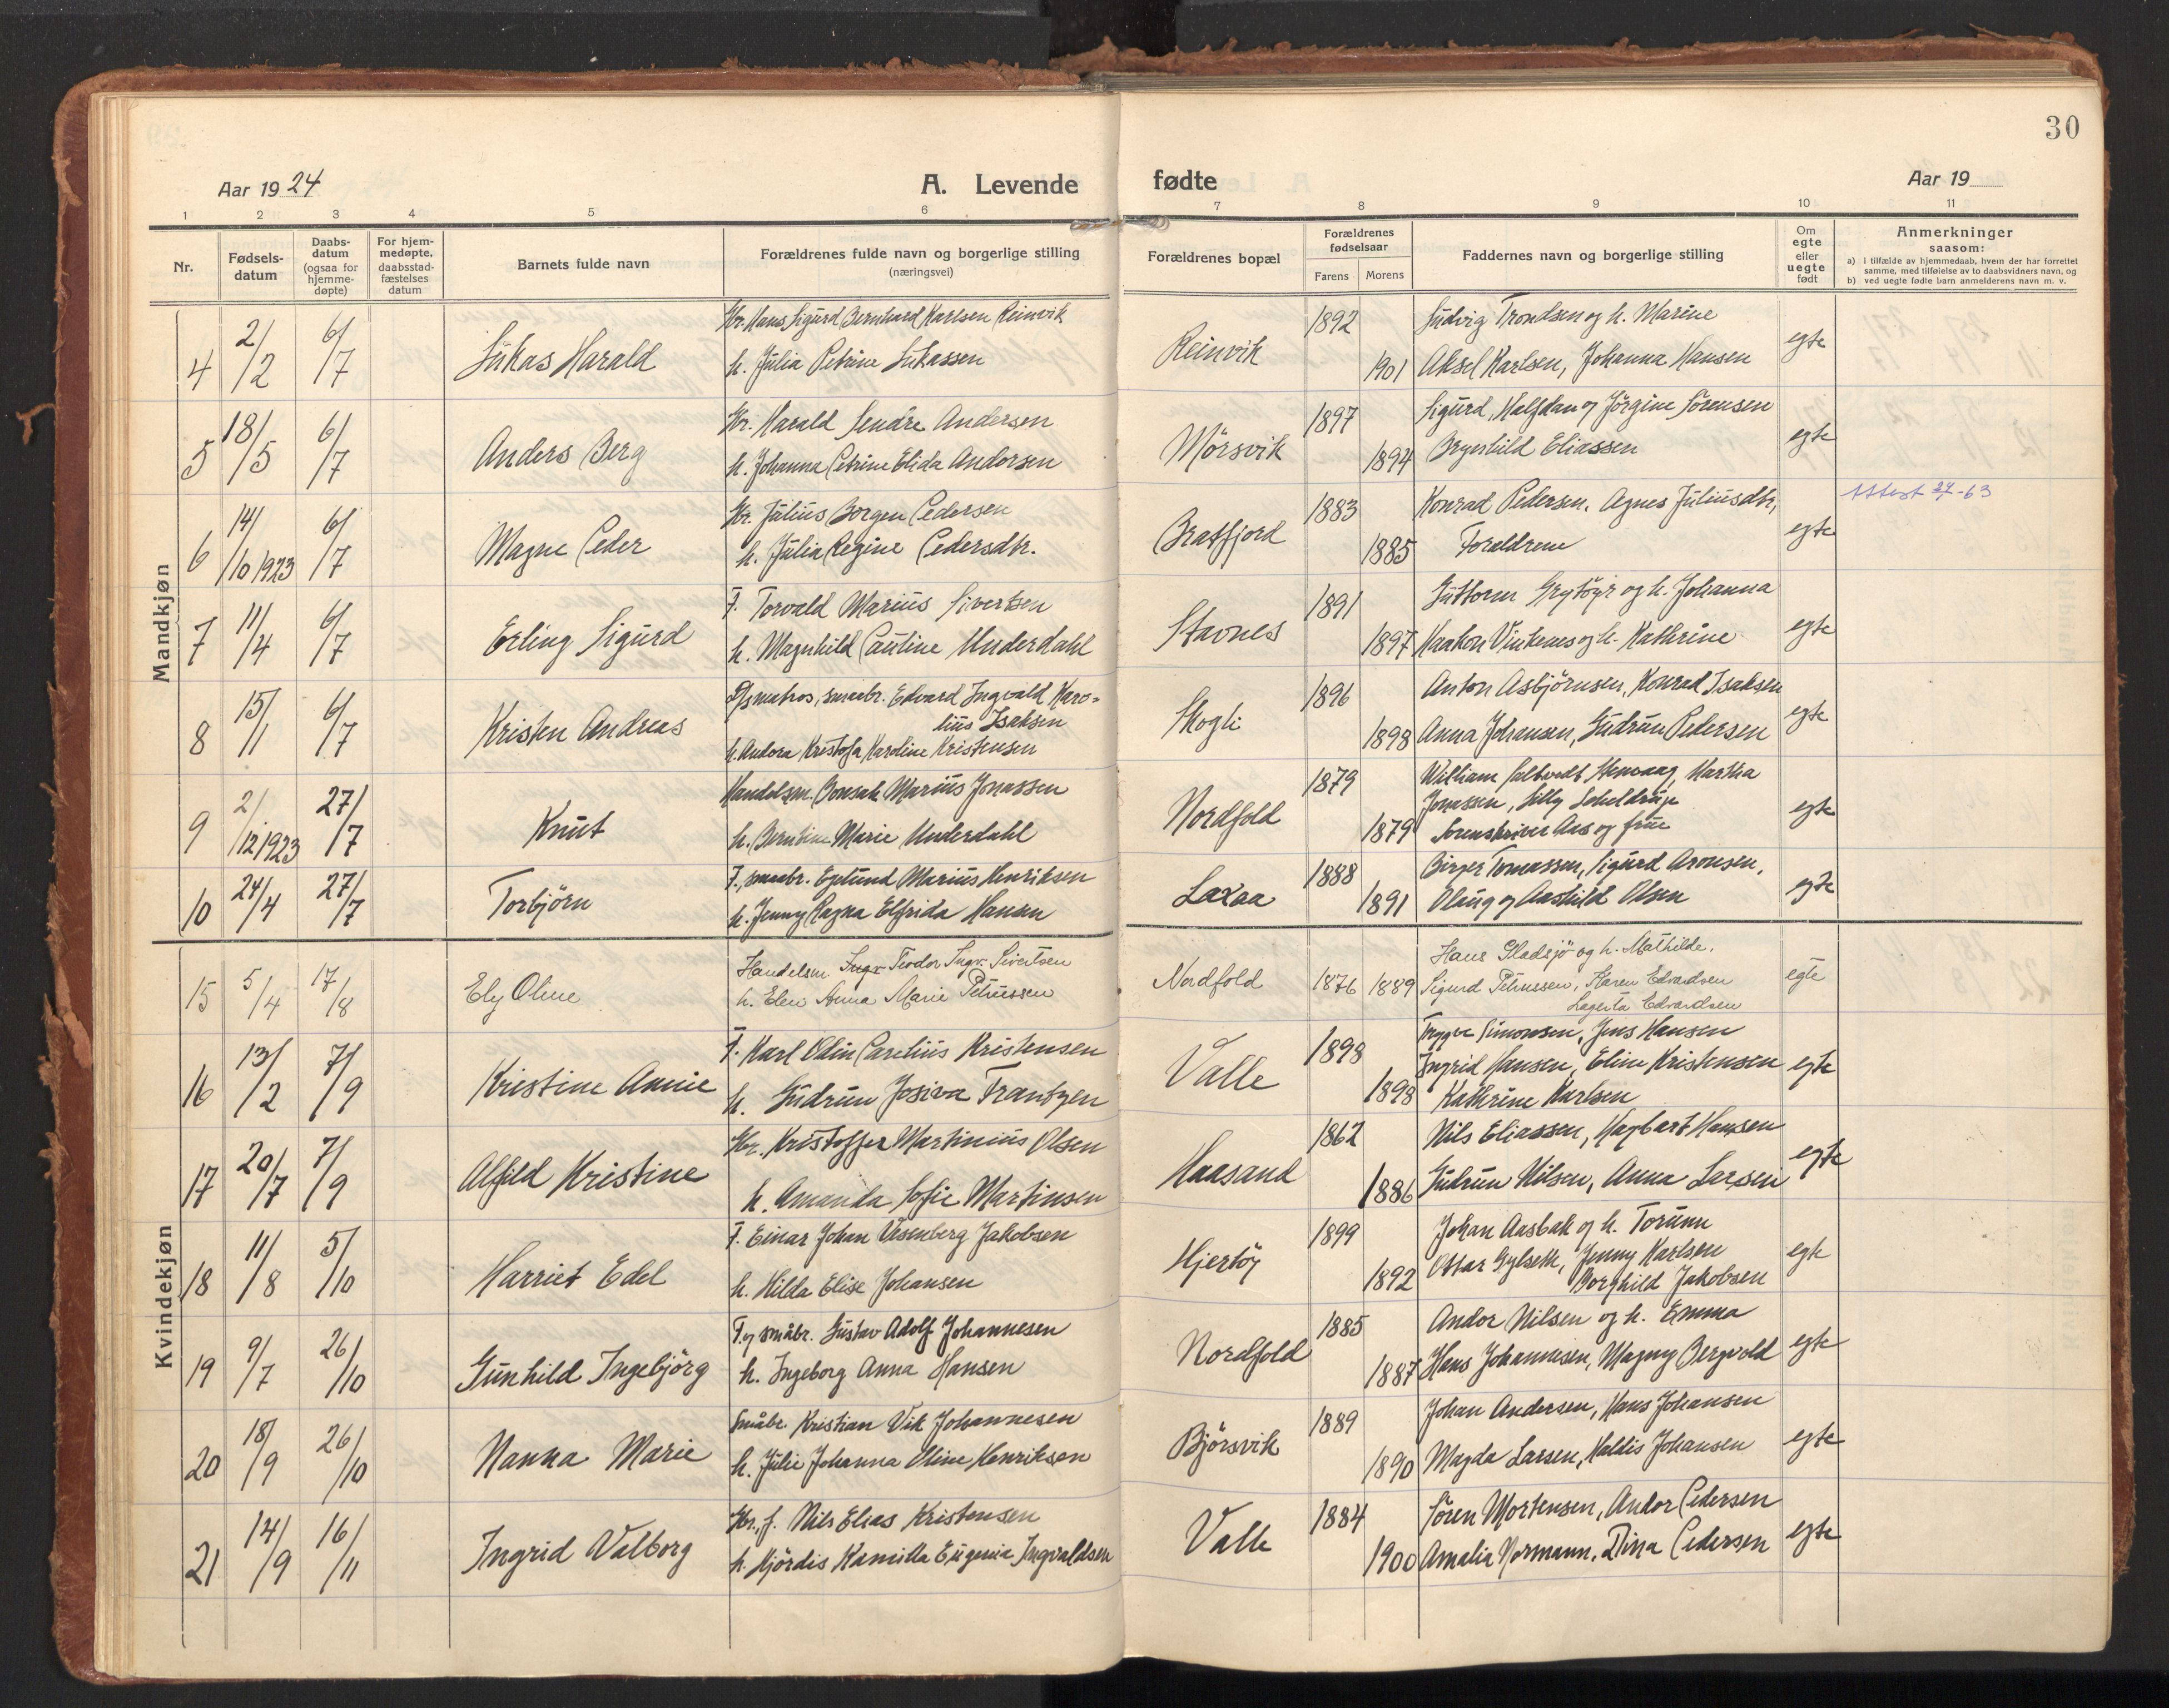 30
Aar 1924 A. Levende fødte Aar 19
1 2 3 4 5 6 7 8 9 10 11
Nr. Fødsels-datum Daabs-datum (ogsaa for hjemme-døpte) For hjem-medøpte, daabsstad-fæstelses datum Barnets fulde navn Forældrenes fulde navn og borgerlige stilling (næringsvei) Forældrenes bopæl Forældrenes fødselsaar Farens Morens Faddernes navn og borgerlige stilling Om egte eller uegte født Anmerkninger saasom:
a) i tilfælde av hjemmedaab, hvem der har forrettet samme, med tilføielse av to daabsvidners navn, og
b) ved uegte fødte barn anmelderens navn m. v.
Mandkjøn
4 2/2 6/7 Lukas Harald Gbr. Hans Sigurd Bernhard Karlsen Reinvik Reinvik 1892 Ludvig Trondsen og h. Marine egte
h. Julia Petrine Lukassen 1901 Aksel Karlsen, Johanna Hansen
5 18/5 6/7 Anders Berg Gbr. Harald Sendre Andersen Mørsvik 1897 Sigurd, Halfdan og Jørgine Sørensen egte
h. Johanna Petrine Elida Andersen 1894 Brynhild Eliassen
6 14/10 1923 6/7 Magne Peder Gbr. Julius Borgen Pedersen Bratfjord 1883 Konrad Pedersen, Agnes Juliusdtr, egte Attest 24/4-63
h. Julia Regine Pedersdtr. 1885 Forældrene
7 11/4 6/7 Erling Sigurd F. Torvald Marius Sivertsen Stavnes 1891 Guttorm Grytøyr og h. Johanna egte
h. Magnhild Pauline Underdahl 1897 Haakon Vinkenes og h. Kathrine
8 15/1 6/7 Kristen Andreas D/s matros, smaabr. Edvard Ingvald Karo-
lius Isaksen Skogli 1896 Anton Asbjørnsen, Konrad Isaksen egte
h. Andora Kristofa Karoline Kristensen 1898 Anna Johansen, Gudrun Pedersen
9 2/12 1923 27/7 Knut Handelsm. Bonsak Marius Jonassen Nordfold 1879 William Hemaag, Martha egte
Jonassen, Lilly Scheldrup
h. Berntine Marie Underdahl 1879 Sorenskriver Aas og frue
10 24/4 27/7 Torbjørn F., smaabr. Egelund Marius Henriksen Laxaa 1888 Birger Tomassen, Sigurd Aronsen, egte
h. Jenny Ragna Elfrida Hansen 1891 Olaug og Aashild Olsen
Kvindekjøn
15 5/4 17/8 Ely Oline Handelsm Ingv. Teodor Ingv. Sivertsen Nordfold 1876 1889 Hans Gladsjø og h. Mathilde. egte
h. Elen Anna Marie Petrussen Sigurd Petrussen, Karen Edvardsen
Lagerta Edvardsen
16 13/2 7/9 Kristine Annie F. Karl Odin Parelius Kristensen Valle 1898 Trygve Simonsen, Jens Hansen egte
Ingrid Hansen, Eline Kristensen
h. Gudrun Josiva Frantzen 1898 Kathrine Karlsen
17 20/7 7/9 Alfild Kristine Gbr. Kristoffer Martinius Olsen Haasand 1862 Nils Eliassen, Hagbart Hansen egte
h. Amanda Sofie Martinsen 1886 Gudrun Nilsen, Anna Larsen
18 11/8 5/10 Harriet Edel F. Einar Johan Vesenberg Jakobsen Hjertøy 1899 Johan Aasbak og h. Torunn egte
h. Hilda Elise Johansen 1892 Ottar Gylseth, Jenny Karlsen
Borghild Jakobsen
19 9/7 26/10 Gunhild Ingebjørg F. og småbr. Gustav Adolf Johannesen Nordfold 1885 Andor Nilsen og h. Emma egte
h. Ingeborg Anna Hansen 1887 Hans Johannesen, Magny Bergvold
20 18/9 26/10 Nanna Marie Småbr. Kristian Vik Johannesen Bjørsvik 1889 Johan Andersen, Hans Johansen egte
h. Julie Johanna Oline Henriksen 1890 Magda Larsen, Haldis Johansen
21 14/9 16/11 Ingrid Valborg Gbr., f. Nils Elias Kristensen Valle 1884 Søren Mortensen, Andor Pedersen egte
h. Hjørdis Kamilla Eugenia Ingvaldsen 1900 Amalia Normann, Dina Pedersen